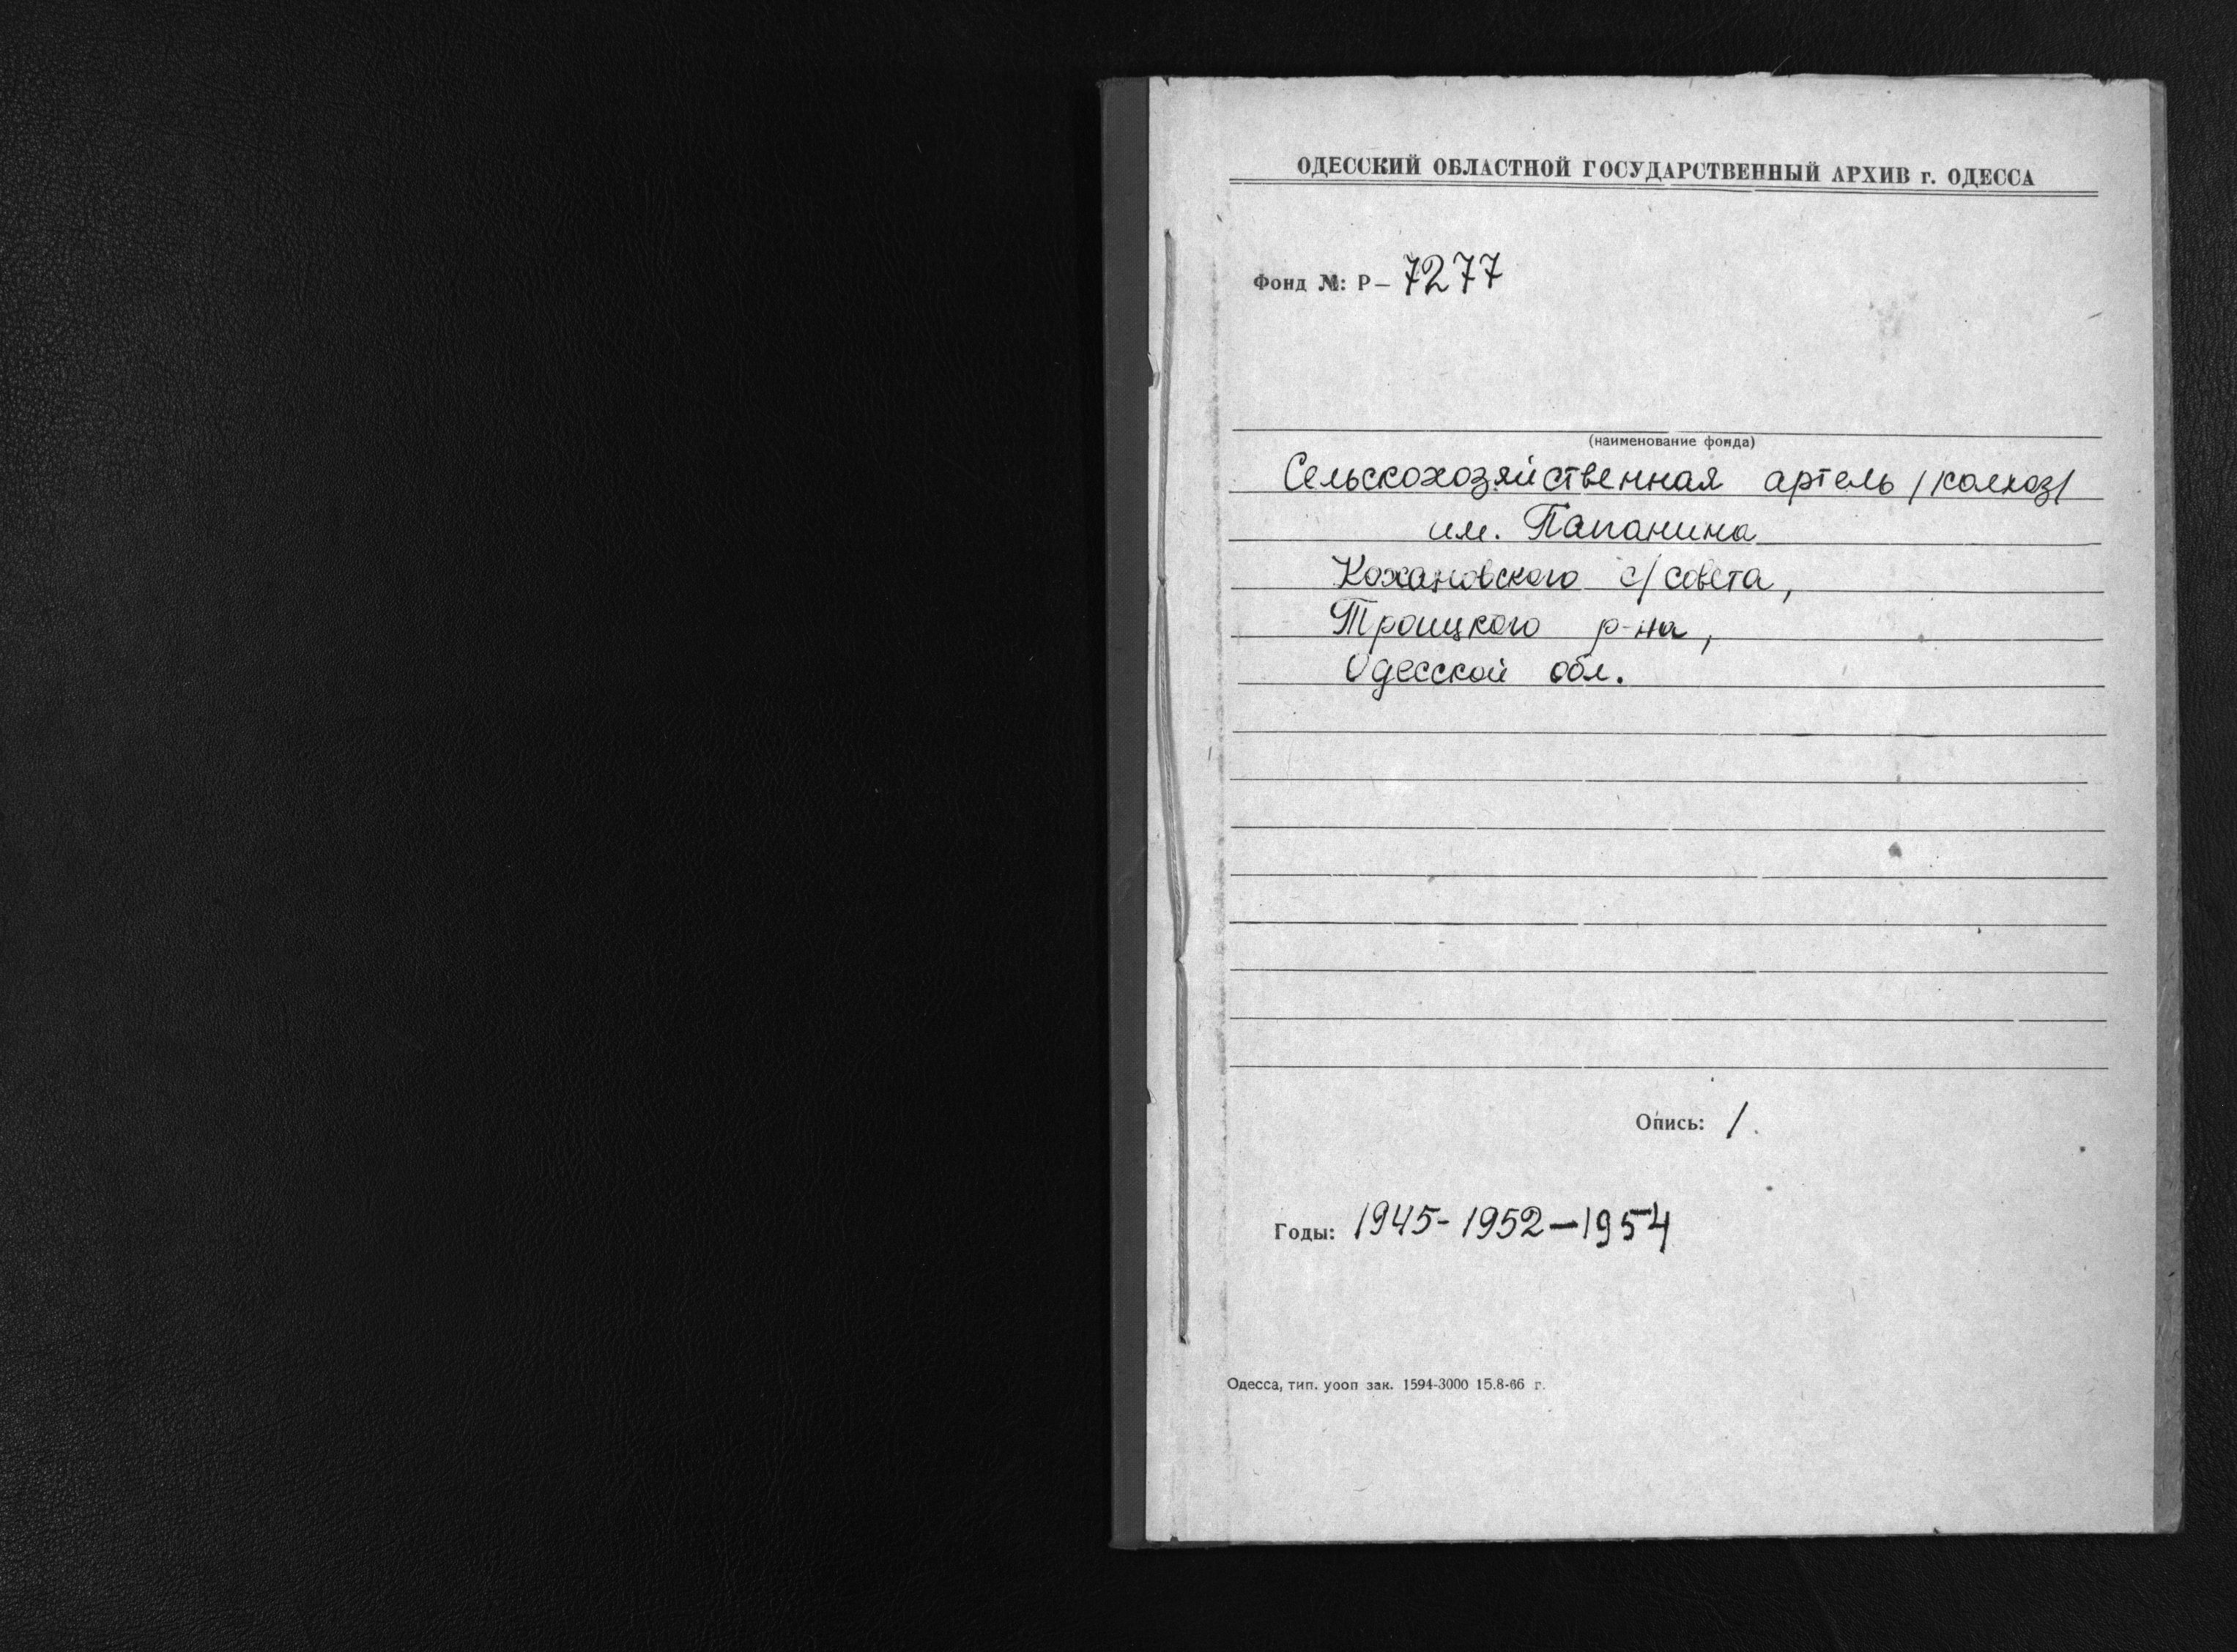 ОДЕССКИЙ ОБЛАСТНОЙ ГОСУДАРСТВЕННЫЙ АРХИВ г. ОДЕССА
Фонд №: Р— 7277
(наименование фонда)
Сельскохозяйственная артель /колхоз/
им. Папанина
Кохановского с/совета,
Троицкого р-на,
Одесской обл.
Опись: 1.
Годы: 1945-1952—1954
Одесса, тип. уооп зак. 1594-3000 15.8-66 г.